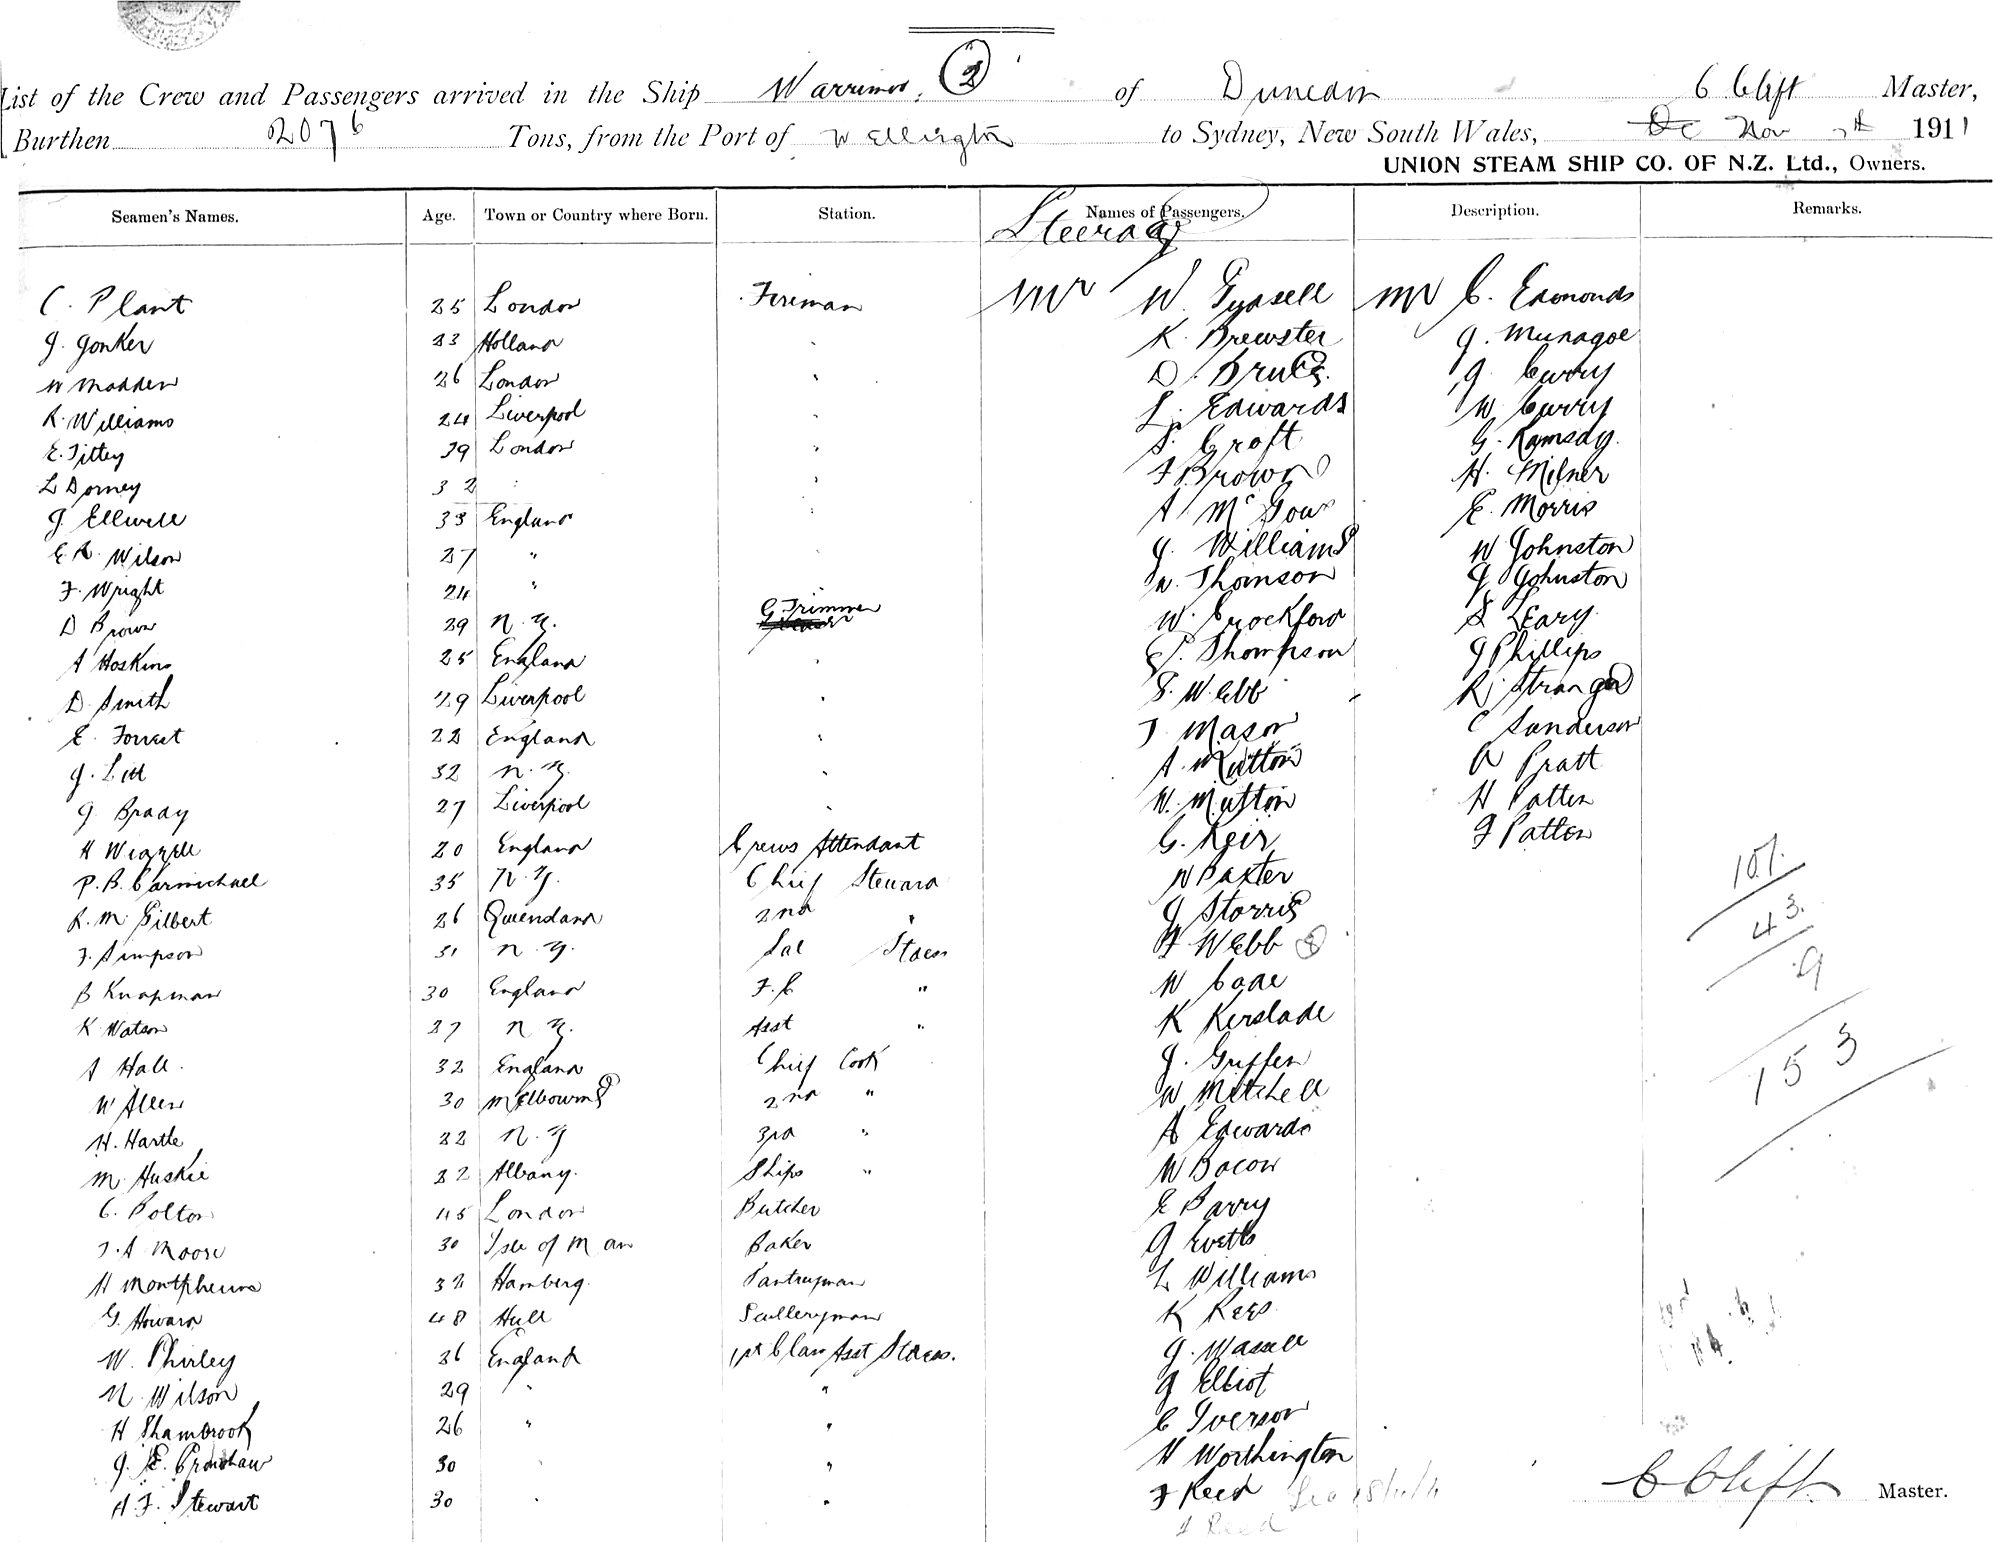 List of the Crew and Passengers arrived in the Ship Warrimoo, 2 of Dunedin C Clift Master,
Burthen 2076 Tons, from the Port of Wellington to Sydney, New South Wales, Nov 7th 1911
UNION STEAM SHIP CO. OF N.Z. Ltd., Owners.
Seamen's Names. Age. Town or Country where Born. Station. Names of Passengers. Description. Remarks.
Steerage
C. Plant 25 London Fireman Mr W. Mr C. Edmonds
J. Jonker 23 Holland K. Brewster J. Munagoe
W Madden 26 London D. Bruce J. Curry
R. Williams 24 Liverpool L. Edwards W. Curry
E. Tittey 39 London S. Croft G. Ramsay.
L Dorney 32 F Brown H. Milner
J Ellwell 33 England A McGow E. Morris
E. R. Wilson 27 " J. Williams W Johnston
F. Wright 24 " W. Thomson J Johnston
D Brown 29 N. Z. Trimmer W. Crockford S Leary
A Hoskins 25 England P. Thompson J Phillips
D. Smith 29 Liverpool S. Webb R. Stranger
E. Forrest 22 England J Mason C Sanderson
J. Litt 32 N. Z. A. Mutton A Pratt
J Brady 27 Liverpool W. Mutton H Patten
H 20 England Crews Attendant G. Keir F Patten
P. B. Carmichael 35 N. Z. Chief Steward W Baxter 101
R. M. Gilbert 26 Queensland 2nd " J Storris 43
F. Simpson 31 N. Z. Sal Staess H Webb 9
B Knapman 30 England F. C " W Cade
K Watson 27 N Z. Asst " K Kerslade 153
A Hall 32 England Chief Cook J. Griffen
W Allen 30 Melbourne 2nd " W Mitchell
H. Hartle 22 N. Z 3rd " A Edwards
M. Huskie 22 Albany. Ships " W Bacon
C. Bolton 45 London Butcher E Barry
J. A Moore 30 Isle of Man Baker J Evetts
H 32 Hamberg. Pantryman L Williams
G. Howard 48 Hull Sculleryman K Rees
W. Phirley 26 England 1st Class Asst Staess. J. Wassell
N. Wilson 29 " " J Elliot
H Shambrook 26 " " C Iverson
J. E. Cranshaw 30 " " H Worthington
H. F. Stewart 30 " " F Reed
C Clift Master.